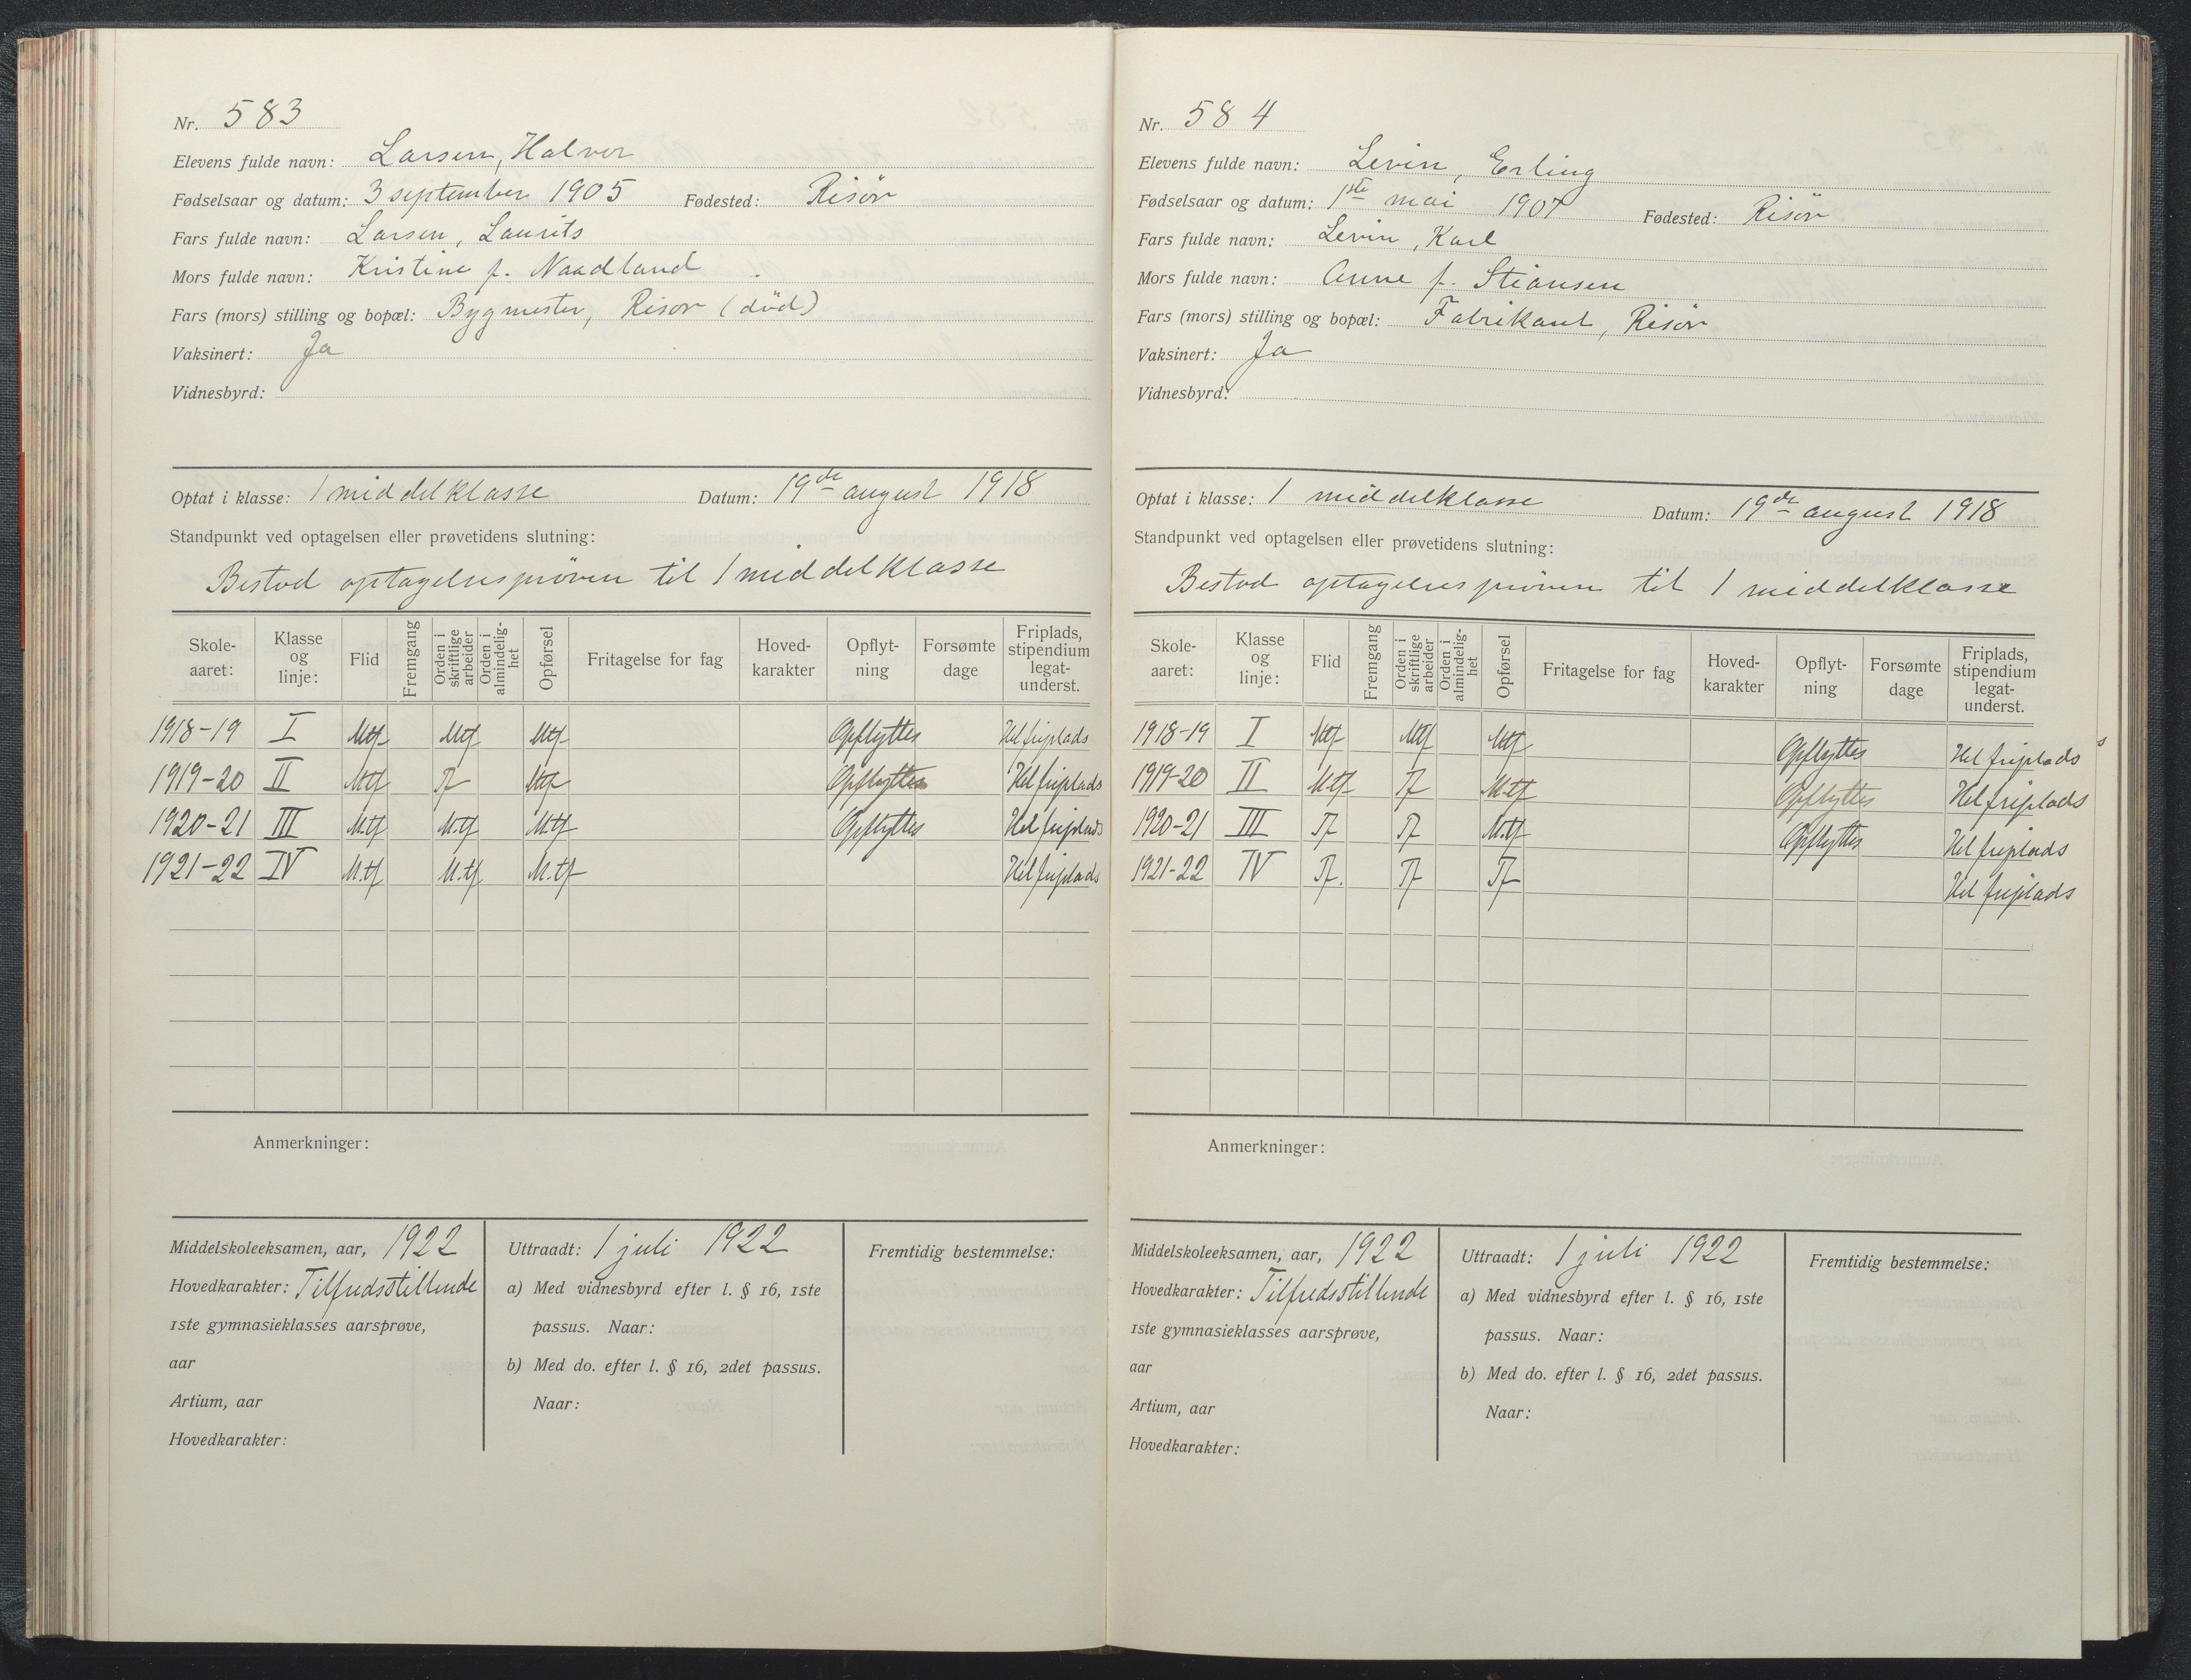 Nr. 583
Elevens fulde navn: Larsen, Halvor
Fødselsaar og datum: 3 september 1905 Fødested: Risör
Fars fulde navn: Larsen, Laurits
Mors fulde navn: Kristine f. Naadland
Fars (mors) stilling og bopæl: Bygmester, Risör (död)
Vaksinert: Ja
Vidnesbyrd:
Optat i klasse: 1 middelklasse Datum: 19de august 1918
Standpunkt ved optagelsen eller prøvetidens slutning:
Bestod optagelsespröven til 1 middelklasse
Skole-aaret: Klasse og linje: Flid Fremgang Orden i skriftlige arbeider Orden i almindelig-het Opførsel Fritagelse for fag Hoved-karakter Opflyt-ning Forsømte dage Friplads, stipendium legat-underst.
1918-19 I Mtf Mtf Mtf Opflyttes Hel friplads
1919-20 II Mtf Tf Mtf Opflyttes Hel friplads
1920-21 III M.tf M.tf M.tf Opflyttes Hel friplads
1921-22 IV M.tf M.tf M.tf Hel friplads
Anmerkninger:
Middelskoleeksamen, aar, 1922
Hovedkarakter: Tilfredsstillende
1ste gymnasieklasses aarsprøve,
aar
Artium, aar
Hovedkarakter:
Uttraadt: 1 juli 1922
a) Med vidnesbyrd efter l. § 16, 1ste
passus. Naar:
b) Med do. efter l. § 16, 2det passus.
Naar:
Fremtidig bestemmelse:
Nr. 584
Elevens fulde navn: Levin, Erling
Fødselsaar og datum: 1ste mai 1907 Fødested: Risör
Fars fulde navn: Levin, Karl
Mors fulde navn: Anne f. Stiansen
Fars (mors) stilling og bopæl: Fabrikant, Risör
Vaksinert: Ja
Vidnesbyrd:
Optat i klasse: 1 middelklasse Datum: 19de august 1918
Standpunkt ved optagelsen eller prøvetidens slutning:
Bestod optagelsespröven til 1 middelklasse
Skole-aaret: Klasse og linje: Flid Fremgang Orden i skriftlige arbeider Orden i almindelig-het Opførsel Fritagelse for fag Hoved-karakter Opflyt-ning Forsømte dage Friplads, stipendium legat-underst.
1918-19 I Mtf Mtf Mtf Opflyttes Hel friplads
1919-20 II M.tf Tf M.tf Opflyttes Hel friplads
1920-21 III Tf Tf M.tf Opflyttes Hel friplads
1921-22 IV Tf. Tf Tf Hel friplads
Anmerkninger:
Middelskoleeksamen, aar, 1922
Hovedkarakter: Tilfredsstillende
1ste gymnasieklasses aarsprøve,
aar
Artium, aar
Hovedkarakter:
Uttraadt: 1 juli 1922
a) Med vidnesbyrd efter l. § 16, 1ste
passus. Naar:
b) Med do. efter l. § 16, 2det passus.
Naar:
Fremtidig bestemmelse: